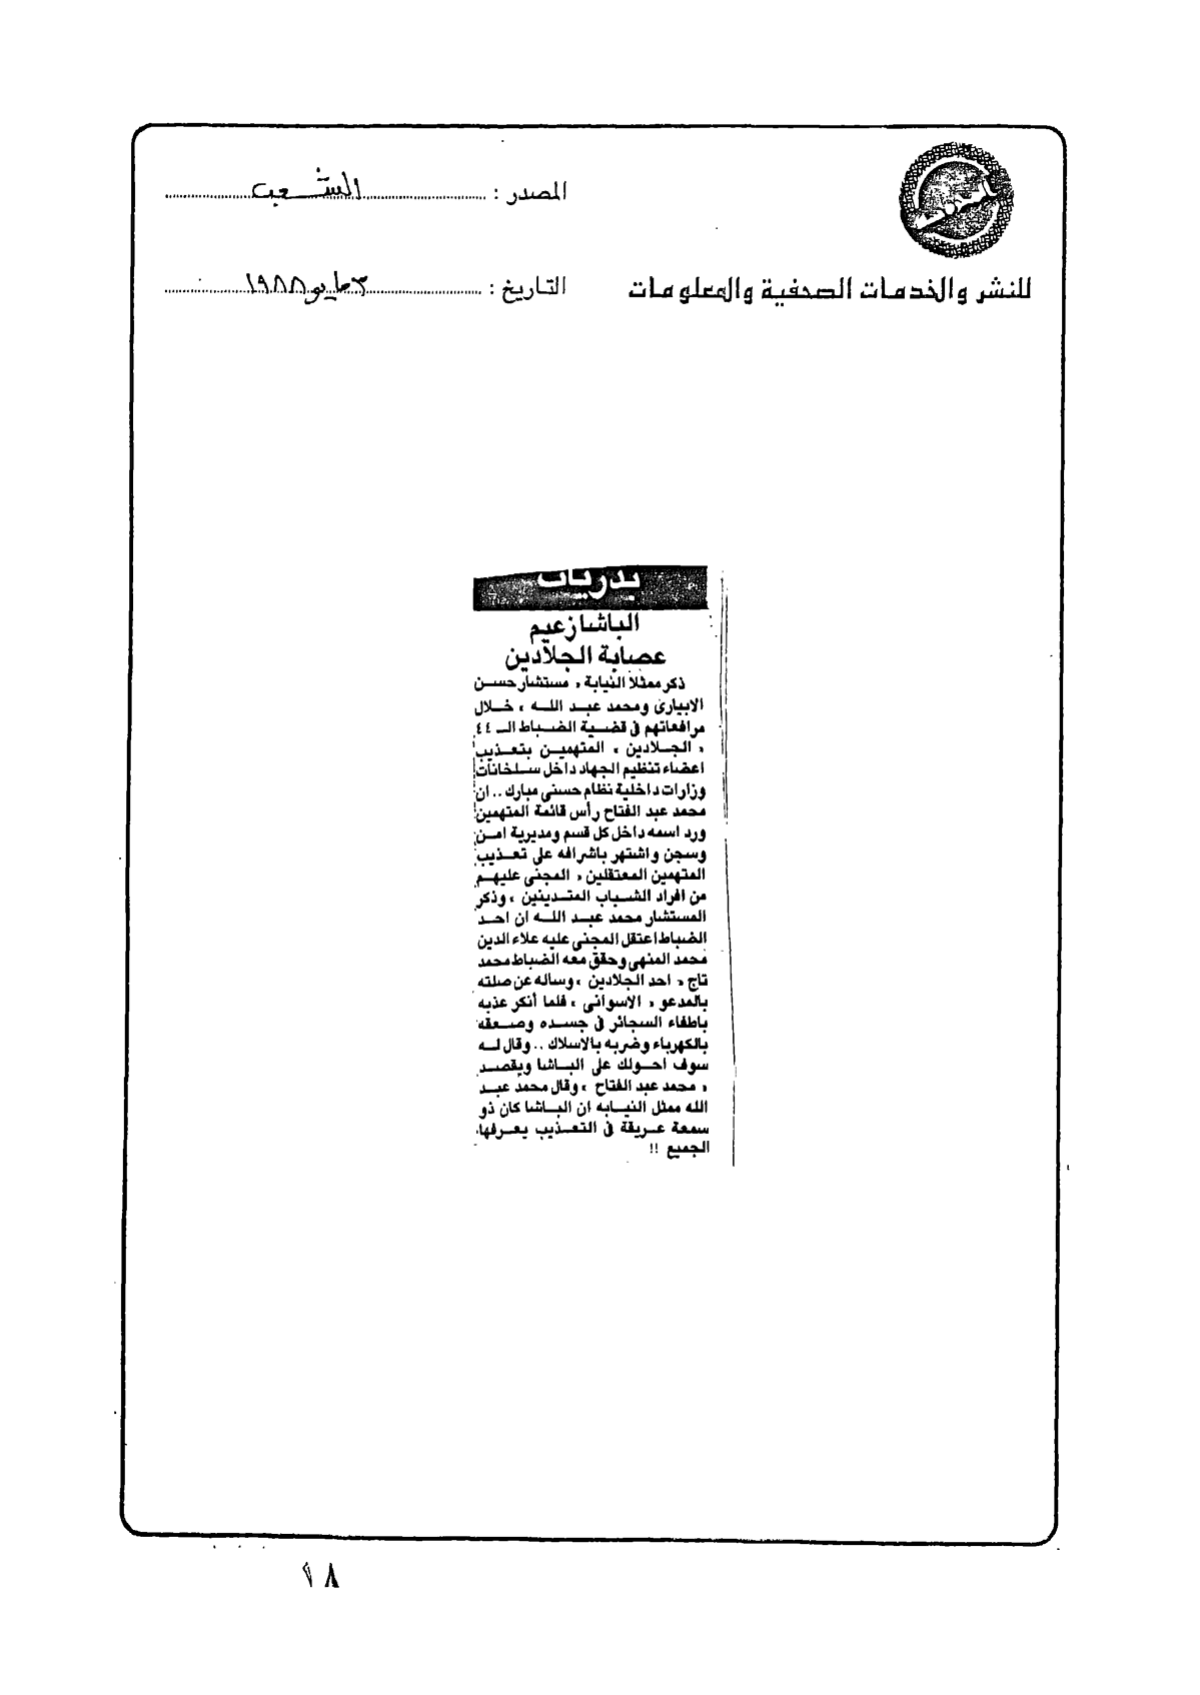 المصدر : الشعب
للنشر والخدمات الصحفية والمعلومات
التاريخ : ٣ مايو ١٩٨٨
بدريات
الباشا زعيم
عصابة الجلادين
ذكر ممثلا النيابة « مستشار حسن
الابيارى ومحمد عبد الله » خلال
مرافعاتهم فى قضية الضباط الـ ٤٤
« الجلادين » المتهمين بتعذيب
اعضاء تنظيم الجهاد داخل سلخانات
وزارات داخلية نظام حسنى مبارك .. ان
محمد عبد الفتاح رأس قائمة المتهمين
ورد اسمه داخل كل قسم ومديرية امن
وسجن واشتهر باشرافه على تعذيب
المتهمين المعتقلين « المجنى عليهم
من افراد الشباب المتدينين » وذكر
المستشار محمد عبد الله ان احد
الضباط اعتقل المجنى عليه علاء الدين
محمد المنهى وحقق معه الضباط محمد
تاج « احد الجلادين » وساله عن صلته
بالمدعو « الاسوانى » فلما أنكر عذبه
باطفاء السجائر فى جسده وصعقه
بالكهرباء وضربه بالاسلاك .. وقال له
سوف احولك على الباشا ويقصد
« محمد عبد الفتاح » وقال محمد عبد
الله ممثل النيابه ان الباشا كان ذو
سمعة عريقة فى التعذيب يعرفها
الجميع !!
١٨